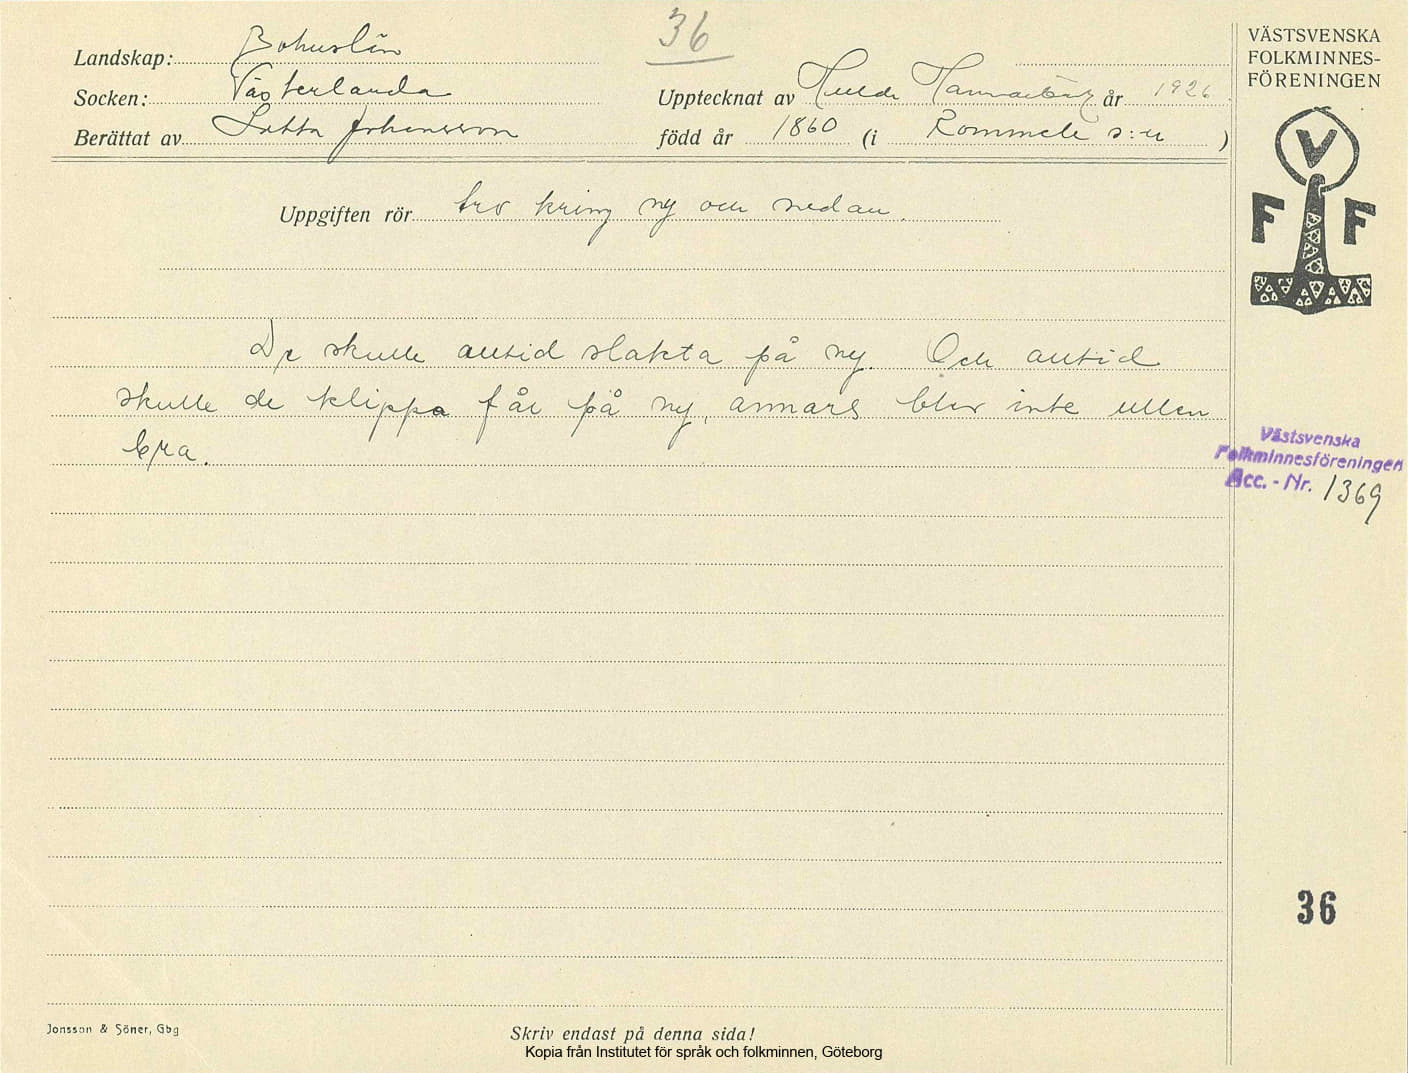 36
VÄSTSVENSKA
FOLKMINNES-
FÖRENINGEN
Landskap: Bohuslän
Socken: Västerlanda
Upptecknat av Hulda Hammarbäck år 1926.
Berättat av Lotta Johansson
född år 1860 (i Rommele s:n )
V
F F
Uppgiften rör tro kring ny och nedan.
De skulle alltid slakta på ny. Och alltid
skulle de klippa får på ny, annars blev inte ullen
bra.
Västsvenska
Folkminnesföreningen
Acc. - Nr. 1369
36
Jonsson & Söner, Gbg
Skriv endast på denna sida!
Kopia från Institutet för språk och folkminnen, Göteborg